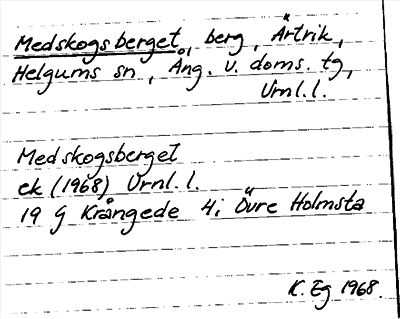 Medskogsberget, berg, Ärtrik,
Helgums sn, Ång. v. doms. tg,
Vrnl.l.
Medskogsberget
ek (1968) Vrnl.l.
19 G Krångede 4i Övre Holmsta
K. Eg 1968.